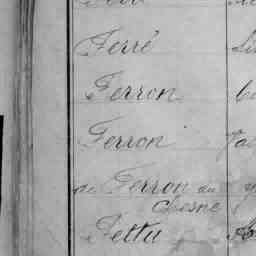 Ferré
Ferron
Ferron
de Ferron du
Chesne
Fettu